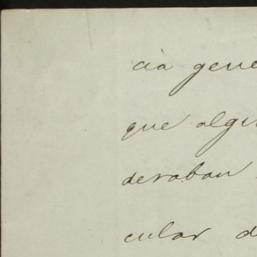 cia gene
que algu
deraban
cular d